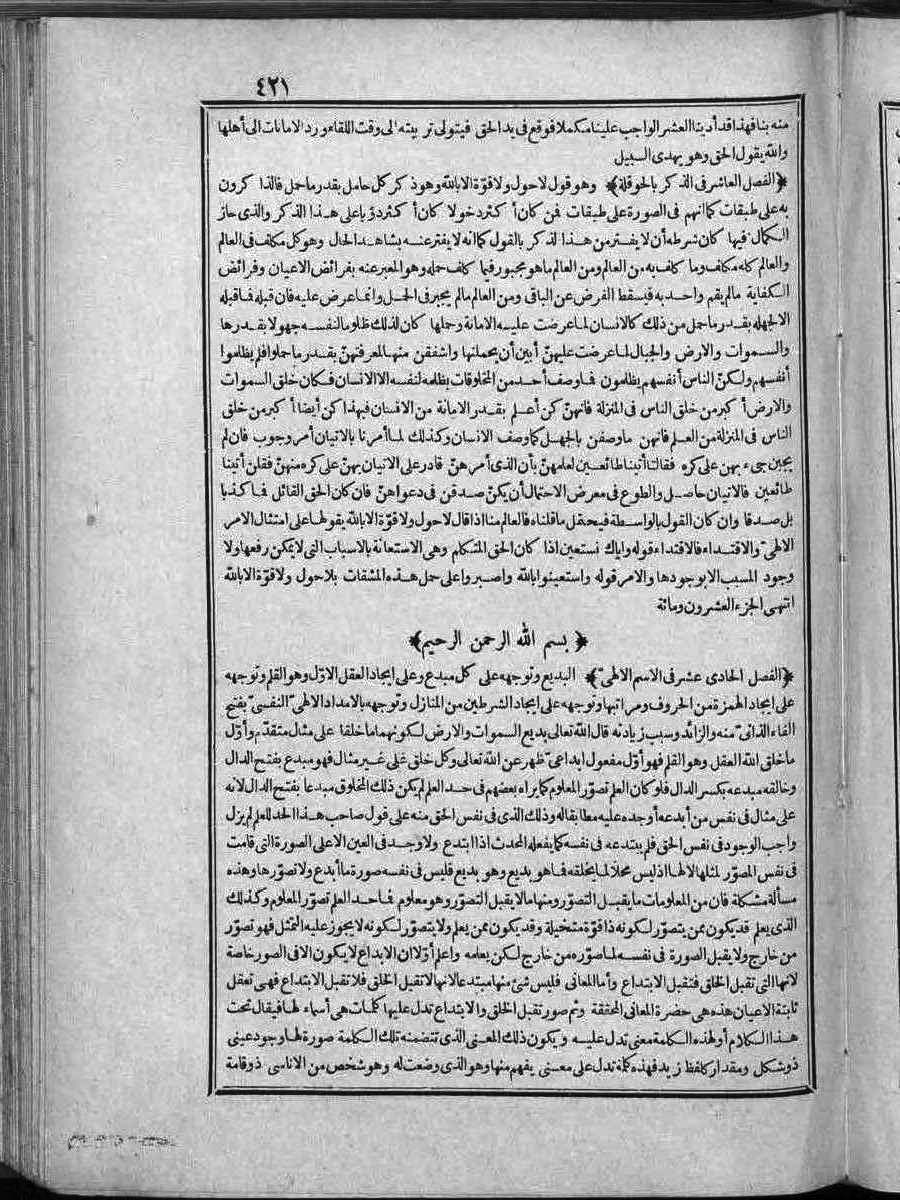 ٤٢١
منه بنا فهذا قد أدينا العشر الواجب علينا مكملا فوقع فى يد الحق فيتولى تربيته الى وقت اللقاء ورد الامانات الى أهلها
والله يقول الحق وهو يهدى السبيل
﴿الفصل العاشر فى الذكر بالحوقلة﴾ وهو قول لا حول ولا قوّة الا بالله وهو ذكر كل حامل بقدر ما حمل فالذا كرون
به على طبقات كما انهم فى الصورة على طبقات فمن كان أكثر دخولا كان أكثر دؤبا على هذا الذكر والذى حاز
الكمال فيها كان شرطه أن لا يفتر من هذا الذكر بالقول كما انه لا يفتر عنه بشاهد الحال وهو كل مكلف فى العالم
والعالم كله مكلف وما كلف به من العالم ومن العالم ما هو مجبور فيما كلف حمله وهو المعبر عنه بفرائض الاعيان وفرائض
الكفاية مالم يقم واحد به فيسقط الفرض عن الباقى ومن العالم مالم يجبر فى الحمل وانما عرض عليه فان قبله فما قبله
الا لجهله بقدر ما حمل من ذلك كالانسان لما عرضت عليه الامانة وحملها كان لذلك ظلوما لنفسه جهولا بقدرها
والسموات والارض والجبال لما عرضت عليهنّ أبين أن يحملنها وأشفقن منها لمعرفتهنّ بقدر ما حملوا فلم يظلموا
أنفسهم ولكنّ الناس أنفسهم يظلمون فما وصف أحد من المخلوقات بظلمه لنفسه الا الانسان فكان خلق السموات
والارض أكبر من خلق الناس فى المنزلة فانهنّ كن أعلم بقدر الامانة من الانسان فبهذا كن أيضا أكبر من خلق
الناس فى المنزلة من العلم فانهن ما وصفن بالجهل كما وصف الانسان وكذلك لما أمرنا بالاتيان أمر وجوب فان لم
يجبن جىء بهن على كره فقالتا أتينا طائعين لعلمهنّ بأن الذى أمرهنّ قادر على الاتيان بهنّ على كره منهنّ فقلن أتينا
طائعين فالاتيان حاصل والطوع فى معرض الاحتمال أن يكنّ صدقن فى دعواهنّ فان كان الحق القائل فما كذبا
بل صدقا وان كان القول بالواسطة فيحتمل ما قلناه فالعالم منا اذا قال لا حول ولا قوّة الا بالله يقولها على امتثال الامر
الالهىّ والاقتداء فالاقتداء قوله واياك نستعين اذا كان الحق المتكلم وهى الاستعانة بالاسباب التى لا يمكن رفعها ولا
وجود المسبب الا بوجودها والامر قوله واستعينوا بالله واصبروا على حمل هذه المشقات بلا حول ولا قوّة الا بالله
انتهى الجزء العشرون ومائة
﴿ بسم الله الرحمن الرحيم ﴾
﴿الفصل الحادى عشر فى الاسم الالهىّ﴾ البديع وتوجهه على كل مبدع وعلى ايجاد العقل الاوّل وهو القلم وتوجهه
على ايجاد الهمزة من الحروف ومراتبها وتوجهه على ايجاد الشرطين من المنازل وتوجهه بالامداد الالهىّ النفسىّ بفتح
الفاء الذاتىّ منه والزائد وسبب زيادته قال الله تعالى بديع السموات والارض لكونهما ما خلقا على مثال متقدّم وأوّل
ما خلق الله العقل وهو القلم فهو أوّل مفعول ابداعىّ ظهر عن الله تعالى وكل خلق على غير مثال فهو مبدع بفتح الدال
وخالقه مبدعه بكسر الدال فلو كان العلم تصوّر المعلوم كما يراه بعضهم فى حد العلم لم يكن ذلك المخلوق مبدعا بفتح الدال لانه
على مثال فى نفس من أبدعه أوجده عليه مطابقا له وذلك الذى فى نفس الحق منه على قول صاحب هذا الحد للعلم لم يزل
واجب الوجود فى نفس الحق فلم يبتدعه فى نفسه كما يفعله المحدث اذا ابتدع ولا وجد فى العين الا على الصورة التى قامت
فى نفس المصوّر لمثلها لا لها اذ ليس محلا لما يخلقه فما هو بديع وهو بديع فليس فى نفسه صورة ما أبدع ولا تصوّرها وهذه
مسألة مشكلة فان من المعلومات ما يقبل التصوّر ومنها مالا يقبل التصوّر وهو معلوم فما حد العلم تصوّر المعلوم وكذلك
الذى يعلم قد يكون ممن يتصوّر لكونه ذا قوّة متخيلة وقد يكون ممن يعلم ولا يتصوّر لكونه لا يجوز عليه التمثل فهو تصوّر
من خارج ولا يقبل الصورة فى نفسه لما صوّره من خارج لكن يعلمه واعلم أوّلا ان الابداع لا يكون الا فى الصور خاصة
لانها التى تقبل الخلق فتقبل الابتداع وأما المعانى فليس شئ منها مبتدعا لانها لا تقبل الخلق فلا تقبل الابتداع فهى تعقل
ثابتة الاعيان هذه هى حضرة المعانى المحققة وثم صور تقبل الخلق والابتداع تدل عليها كلمات هى أسماء لها فيقال تحت
هذا الكلام أو لهذه الكلمة معنى تدل عليه ويكون ذلك المعنى الذى تتضمنه تلك الكلمة صورة لها وجود عينى
ذو شكل ومقدار كلفظ زيد فهذه كلمة تدل على معنى يفهم منها وهو الذى وضعت له وهو شخص من الاناسى ذو قامة